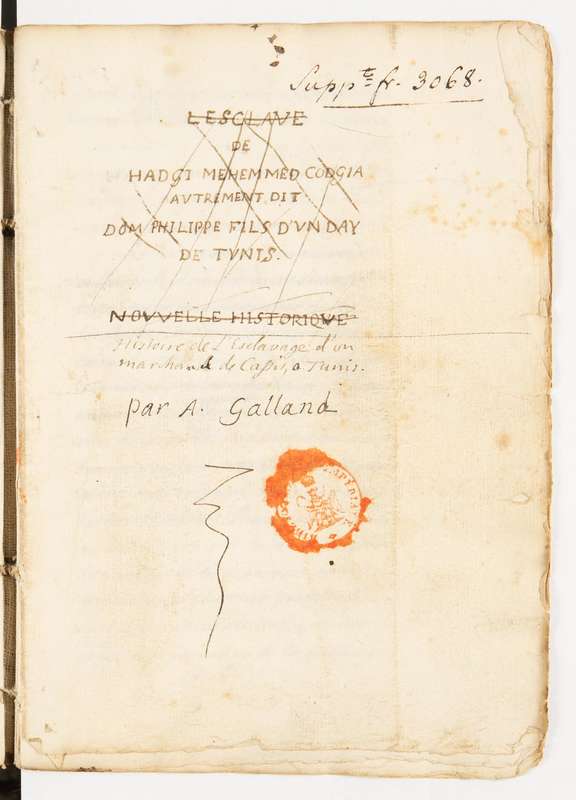 Supp.te fr. 3068.
L'ESCLAVE
DE
HADGI MEHEMMED CODGIA
AVTREMENT DIT
DOM PHILIPPE FILS D'VN DAY
DE TVNIS.
NOVVELLE HISTORIQVE
Histoire de L'Esclavage d'un
marchand de Cassis, a Tunis.
par A. Galland